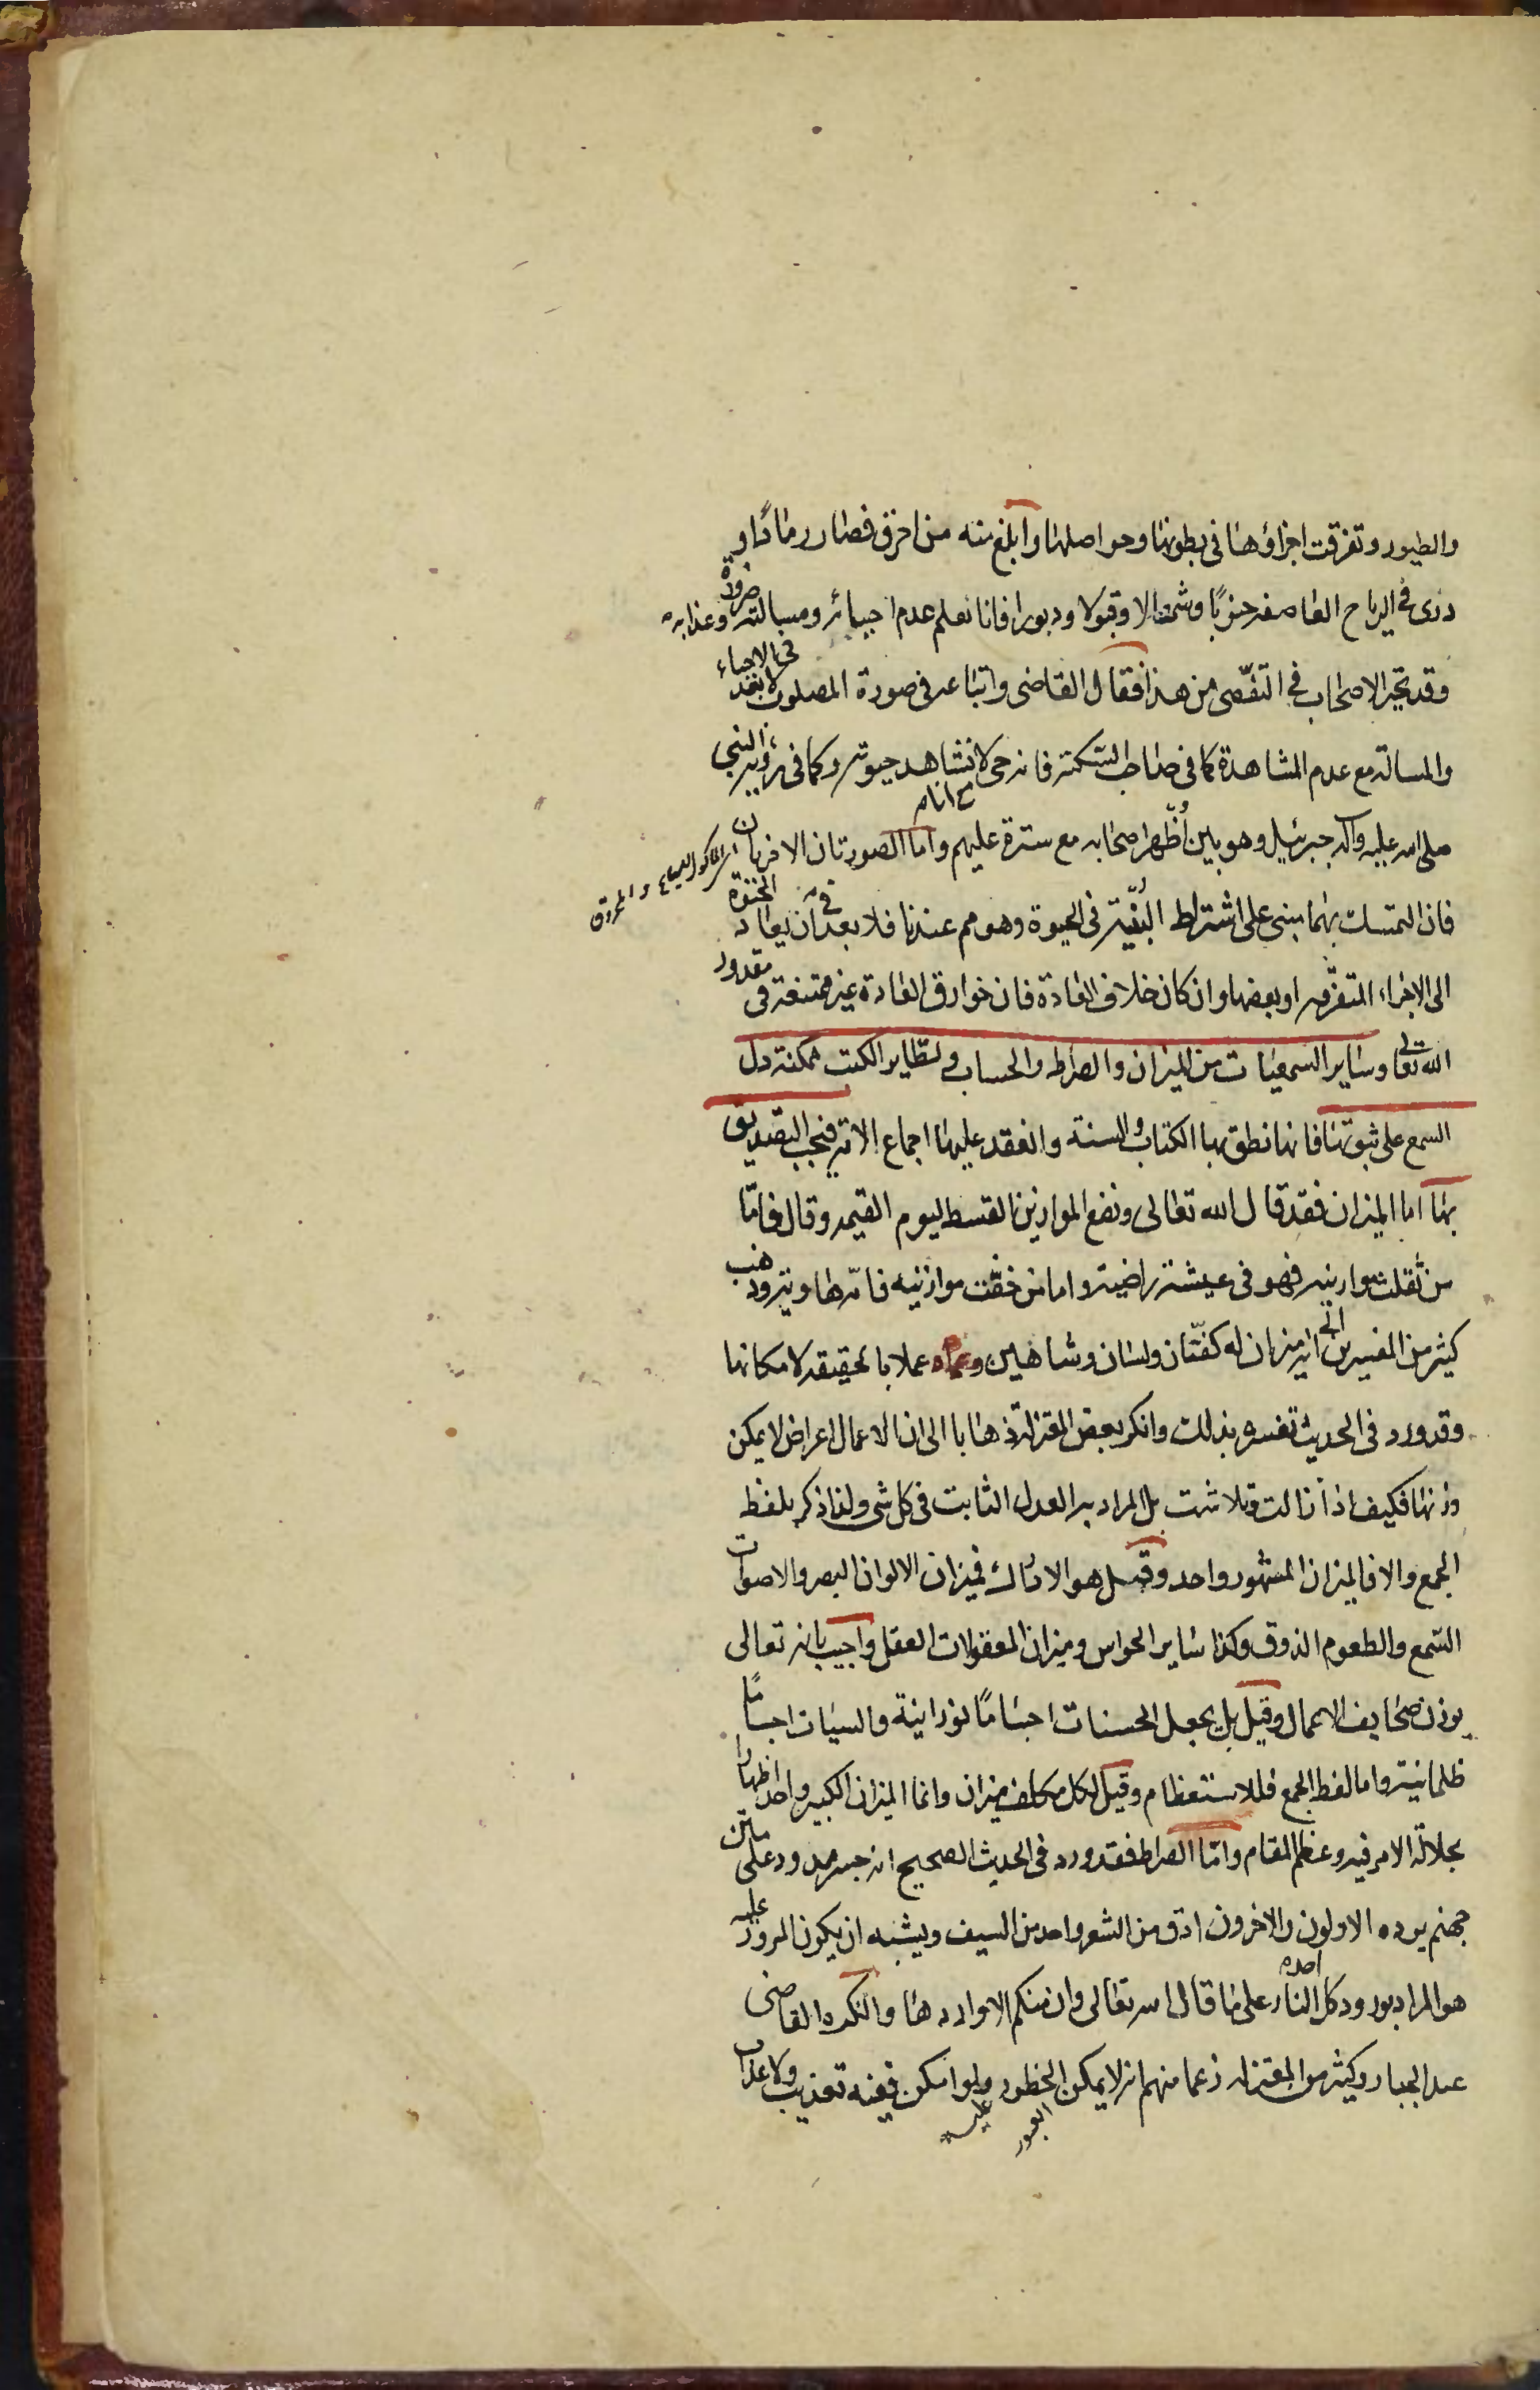 والطيور وتفرقت اجزاؤها فى بطونها وحواصلها وابلغ منه من احرق فصار رمادًا و
ذرى فى الرياح العاصفه جنوبًا وشمالا وقبولا ودبورا فانا نعلم عدم احيائه ومسالته وعذابه ضرورة
وقد تحير الاصحاب فى التفصّى من هذا فقال القاضى واتباعه فى صورة المصلوب لا بعد فى الاحياء
والمسالة مع عدم المشاهدة كما فى صاحب السّكتة فانه حى لا نشاهد حيوته وكما فى رؤية النبى
صلى الله عليه وآله جبرئيل وهو بين أظهر اصحابه مع ستره عليهم واما الصورتان الاخريان
اى الماكول السباع والمحروق
فان التمسك بهما مبنى على اشتراط البنية فى الحيوة وهو مم عندنا فلا بعد فى ان يعاد الحيوة
الى الاجزاء المتفرّقه او بعضها وان كان خلاف العادة فان خوارق العادة غير ممتنعة فى مقدور
الله تعالى وساير السمعيات من الميزان والصراط والحساب وتطاير الكتب ممكنة دل
السمع على ثبوتها فانها نطق بها الكتاب والسنة وانعقد عليها اجماع الامة فيجب التصديق
بها اما الميزان فقد قال الله تعالى ونضع الموازين القسط ليوم القيمه وقال فامّا
من ثقلت موازينه فهو فى عيشة راضية واما من خفّت موازينه فامّه هاوية وذهب
كثير من المفسرين الى انه ميزان له كفّتان ولسان وشاهين عملا بالحقيقه لامكانها
وقد ورد فى الحديث تفسيره بذلك وانكر بعض المعتزلة ذهابا الى ان الاعمال اعراض لا يمكن
وزنها فكيف اذا زالت وتلاشت بل المراد به العدل الثابت فى كل شى ولذا ذكر بلفظ
الجمع والا فالميزان المشهور واحد وقيل هو الادراك فميزان الالوان البصر والاصوات
السّمع والطعوم الذوق وكذا ساير الحواس وميزان المعقولات العقل واجيب بانه تعالى
يوزن صحايف الاعمال وقيل بل يجعل الحسنات اجسامًا نورانية والسيات اجسامًا
ظلمانية واما لفظ الجمع فللاستعظام وقيل لكل مكلف ميزان وانما الميزان الكبير واحد اظهارا
بجلالة الامر فيه وعظم المقام وامّا الصراط فقد ورد فى الحديث الصحيح انه جسر ممدود على متن
جهنم يرده الاولون والاخرون ادق من الشعر واحد من السيف ويشبه ان يكون المرور عليه
هو المراد بورود كل احد النار على ما قال الله تعالى وان منكم الا واردها وانكره القاضى
عبد الجبار وكثير من المعتزله زعما منهم انه لا يمكن الخطور ولو امكن ففيه تعذيب ولا عذاب
العبور عليه